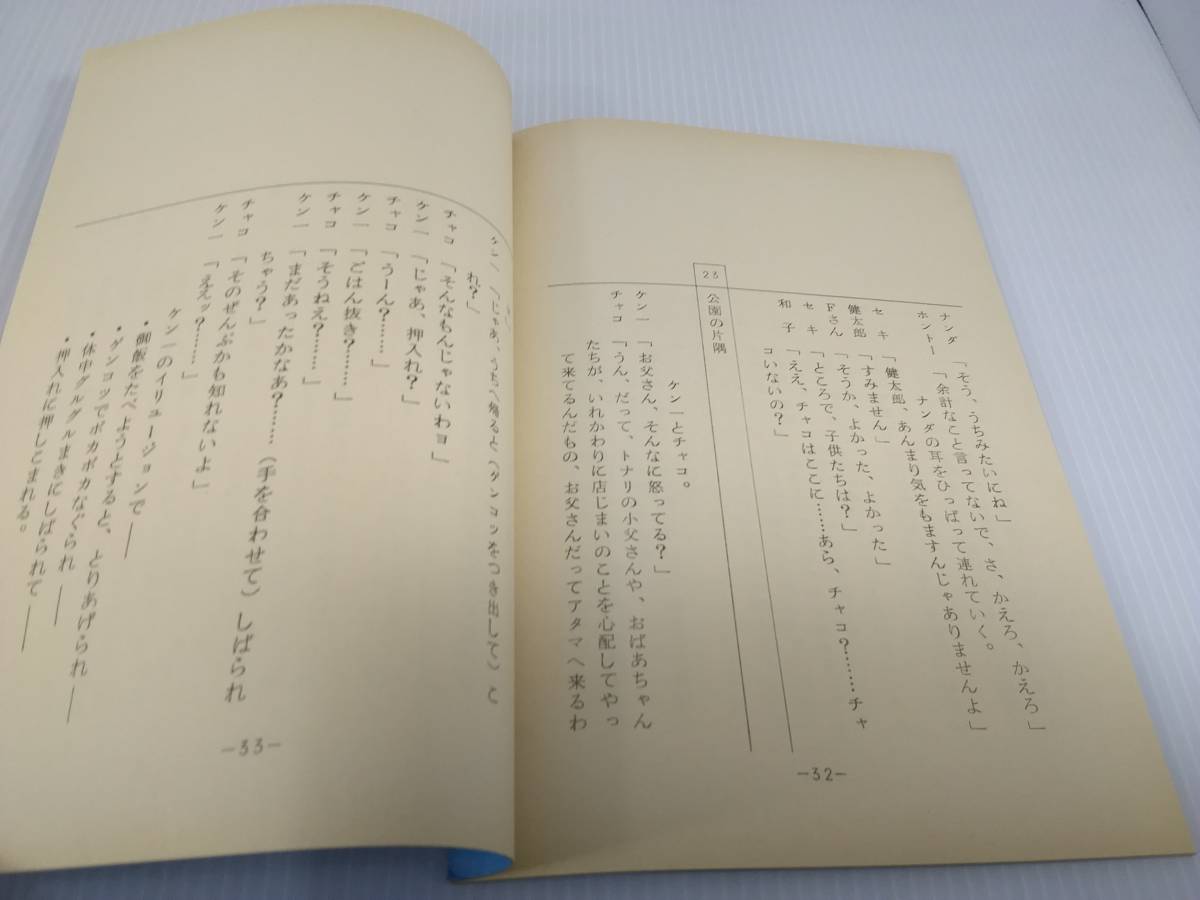 ナンダ 「そう、うちみたいにね」
ホントー 「余計なこと言ってないで、さ、かえろ、かえろ」
ナンダの耳をひっぱって連れていく。
セキ 「健太郎、あんまり気をもますんじゃありませんよ」
健太郎 「すみません」
Fさん 「そうか、よかった、よかった」
セキ 「ところで、子供たちは?」
和子 「ええ、チャコはここに……あら、チャコ?……チャ
コいないの?」
23 公園の片隅
ケン一とチャコ。
ケン一 「お父さん、そんなに怒ってる?」
チャコ 「うん、だって、トナリの小父さんや、おばあちゃん
たちが、いれかわりに店じまいのことを心配してやっ
て来てるんだもの、お父さんだってアタマへ来るわ
-32-
ケン一 「じゃあ、うちへ帰ると(ゲンコツをつき出して)と
れ?」
チャコ 「そんなもんじゃないわョ」
ケン一 「じゃあ、押入れ?」
チャコ 「うーん?……」
ケン一 「ごはん抜き?……」
チャコ 「そうねえ?……」
ケン一 「まだあったかなあ?……(手を合わせて)しばられ
ちゃう?」
チャコ 「そのぜんぶかも知れないよ」
ケン一 「ええッ?……」
ケン一のイリュージョンで——
・御飯をたべようとすると、とりあげられ——
・ゲンコツでポカポカなぐられ——
・休中グルグルまきにしばられて——
・押入れに押しこまれる。
-33-